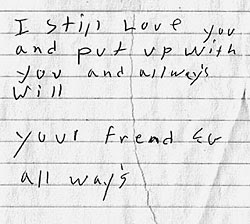 I still Love you
and put up with
you and allway's
will
your frend
all way's